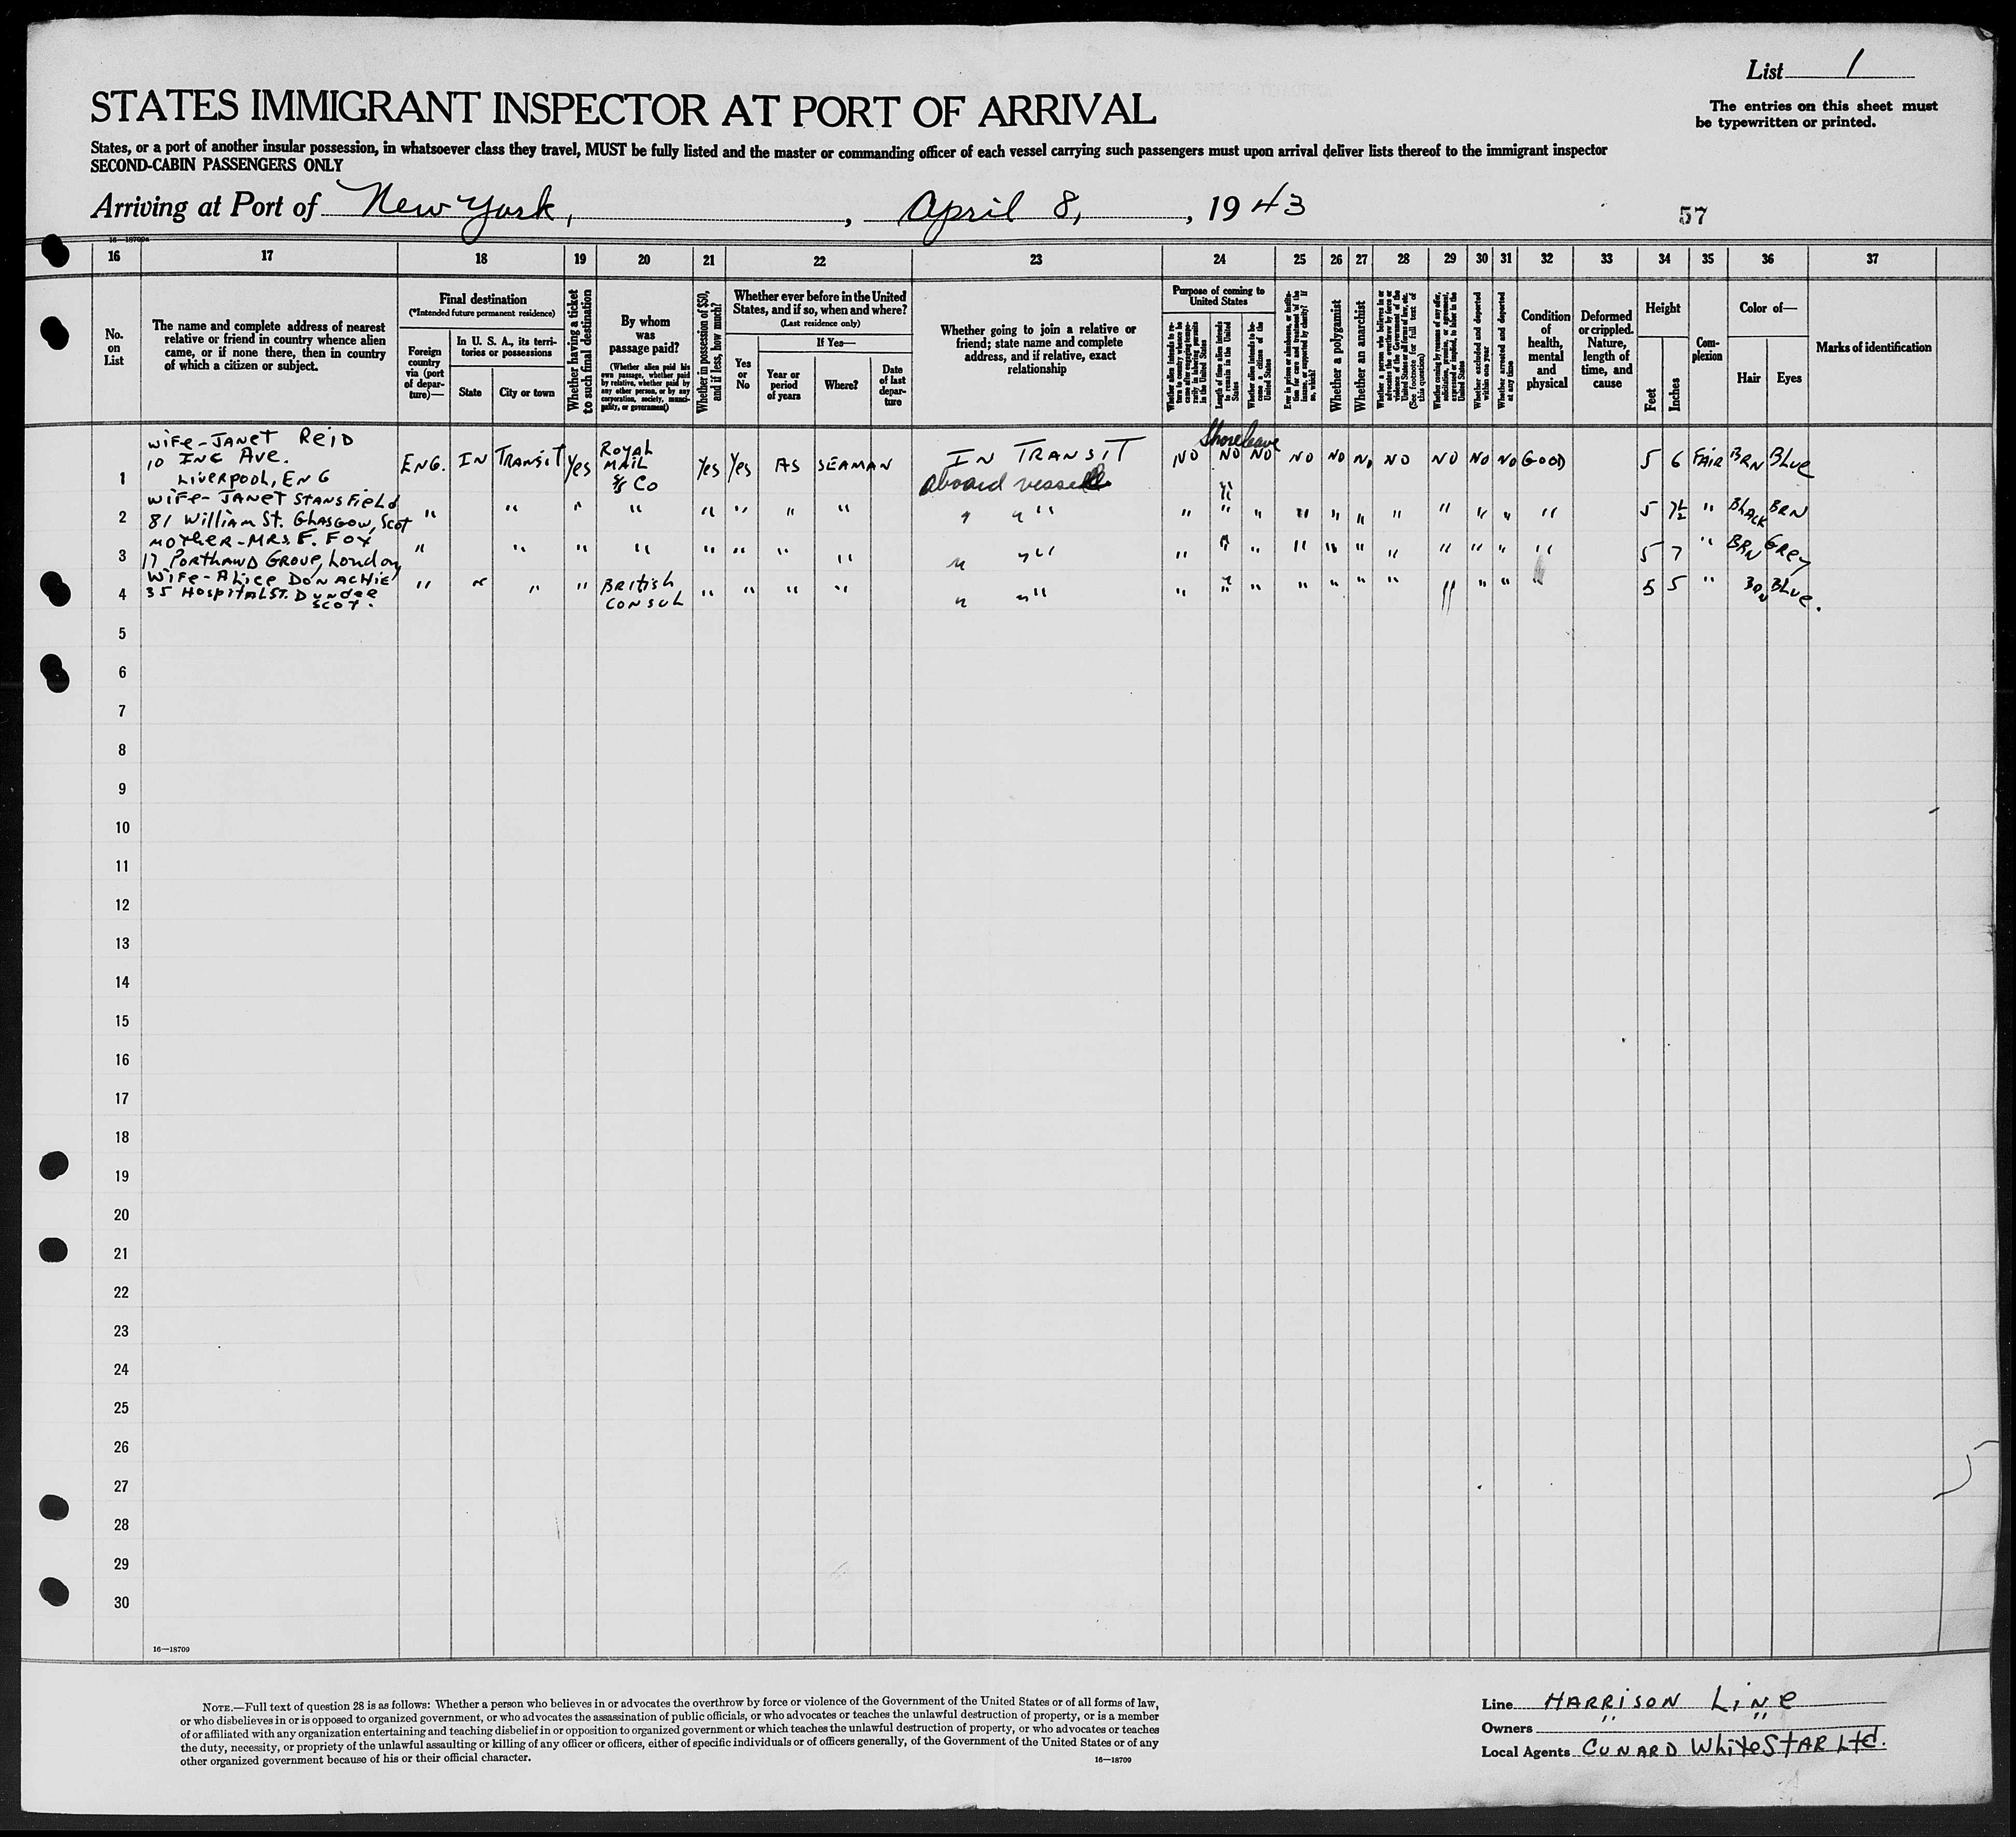 List 1
The entries on this sheet must
be typewritten or printed.
STATES IMMIGRANT INSPECTOR AT PORT OF ARRIVAL
States, or a port of another insular possession, in whatsoever class they travel, MUST be fully listed and the master or commanding officer of each vessel carrying such passengers must upon arrival deliver lists thereof to the immigrant inspector
SECOND-CABIN PASSENGERS ONLY
Arriving at Port of New York, , April 8, , 1943
57
16 17 18 19 20 21 22 23 24 25 26 27 28 29 30 31 32 33 34 35 36 37
No.
on
List
The name and complete address of nearest
relative or friend in country whence alien
came, or if none there, then in country
of which a citizen or subject.
Final destination
(*Intended future permanent residence)
Foreign
country
via (port
of depar-
ture)—
In U. S. A., its terri-
tories or possessions
State
City or town
Whether having a ticket
to such final destination
By whom
was
passage paid?
(Whether alien paid his
own passage, whether paid
by relative, whether paid by
any other person, or by any
corporation, society, munici-
pality, or government)
Whether in possession of $50,
and if less, how much?
Whether ever before in the United
States, and if so, when and where?
(Last residence only)
Yes
or
No
If Yes—
Year or
period
of years
Where?
Date
of last
depar-
ture
Whether going to join a relative or
friend; state name and complete
address, and if relative, exact
relationship
Purpose of coming to
United States
Length of time alien intends
to remain in the United
States
Whether alien intends to be-
come a citizen of the
United States
Whether a polygamist
Whether an anarchist
(See footnote for full text of
this question)
Whether excluded and deported
within one year
Whether arrested and deported
at any time
Condition
of
health,
mental
and
physical
Deformed
or crippled.
Nature,
length of
time, and
cause
Height
Feet
Inches
Com-
plexion
Color of—
Hair
Eyes
Marks of identification
1 WIFE-JANET REID
10 ING AVE.
LIVERPOOL, ENG
ENG. IN TRANSIT Yes ROYAL
MAIL
S/S CO
Yes Yes AS SEAMAN IN TRANSIT
aboard vessel
Shore leave
NO NO NO NO NO NO NO NO NO NO GOOD 5 6 FAIR BRN BLUE
2 WIFE-JANET STANSFIELD
81 WILLIAM ST. GLASGOW, SCOT
" " " " " " " " " " " " " " " " " " " " " 5 7½ " BLACK BRN
3 MOTHER-MRS F. FOX
17 PORTHAND GROVE, LONDON
" " " " " " " " " " " " " " " " " " " " " 5 7 " BRN GREY
4 WIFE-ALICE DONACHIE
35 HOSPITAL ST. DUNDEE
SCOT.
" " " " BRITISH
CONSUL
" " " " " " " " " " " " " " " " " 5 5 " BRN BLUE.
5
6
7
8
9
10
11
12
13
14
15
16
17
18
19
20
21
22
23
24
25
26
27
28
29
30
16—18709
NOTE.—Full text of question 28 is as follows: Whether a person who believes in or advocates the overthrow by force or violence of the Government of the United States or of all forms of law,
or who disbelieves in or is opposed to organized government, or who advocates the assassination of public officials, or who advocates or teaches the unlawful destruction of property, or is a member
of or affiliated with any organization entertaining and teaching disbelief in or opposition to organized government or which teaches the unlawful destruction of property, or who advocates or teaches
the duty, necessity, or propriety of the unlawful assaulting or killing of any officer or officers, either of specific individuals or of officers generally, of the Government of the United States or of any
other organized government because of his or their official character.
16—18709
Line HARRISON LINE
Owners " "
Local Agents CUNARD WHITE STAR LTD.